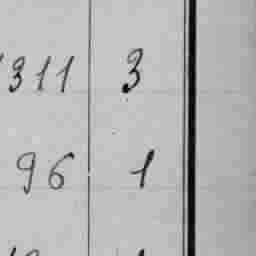 311 3
96 1